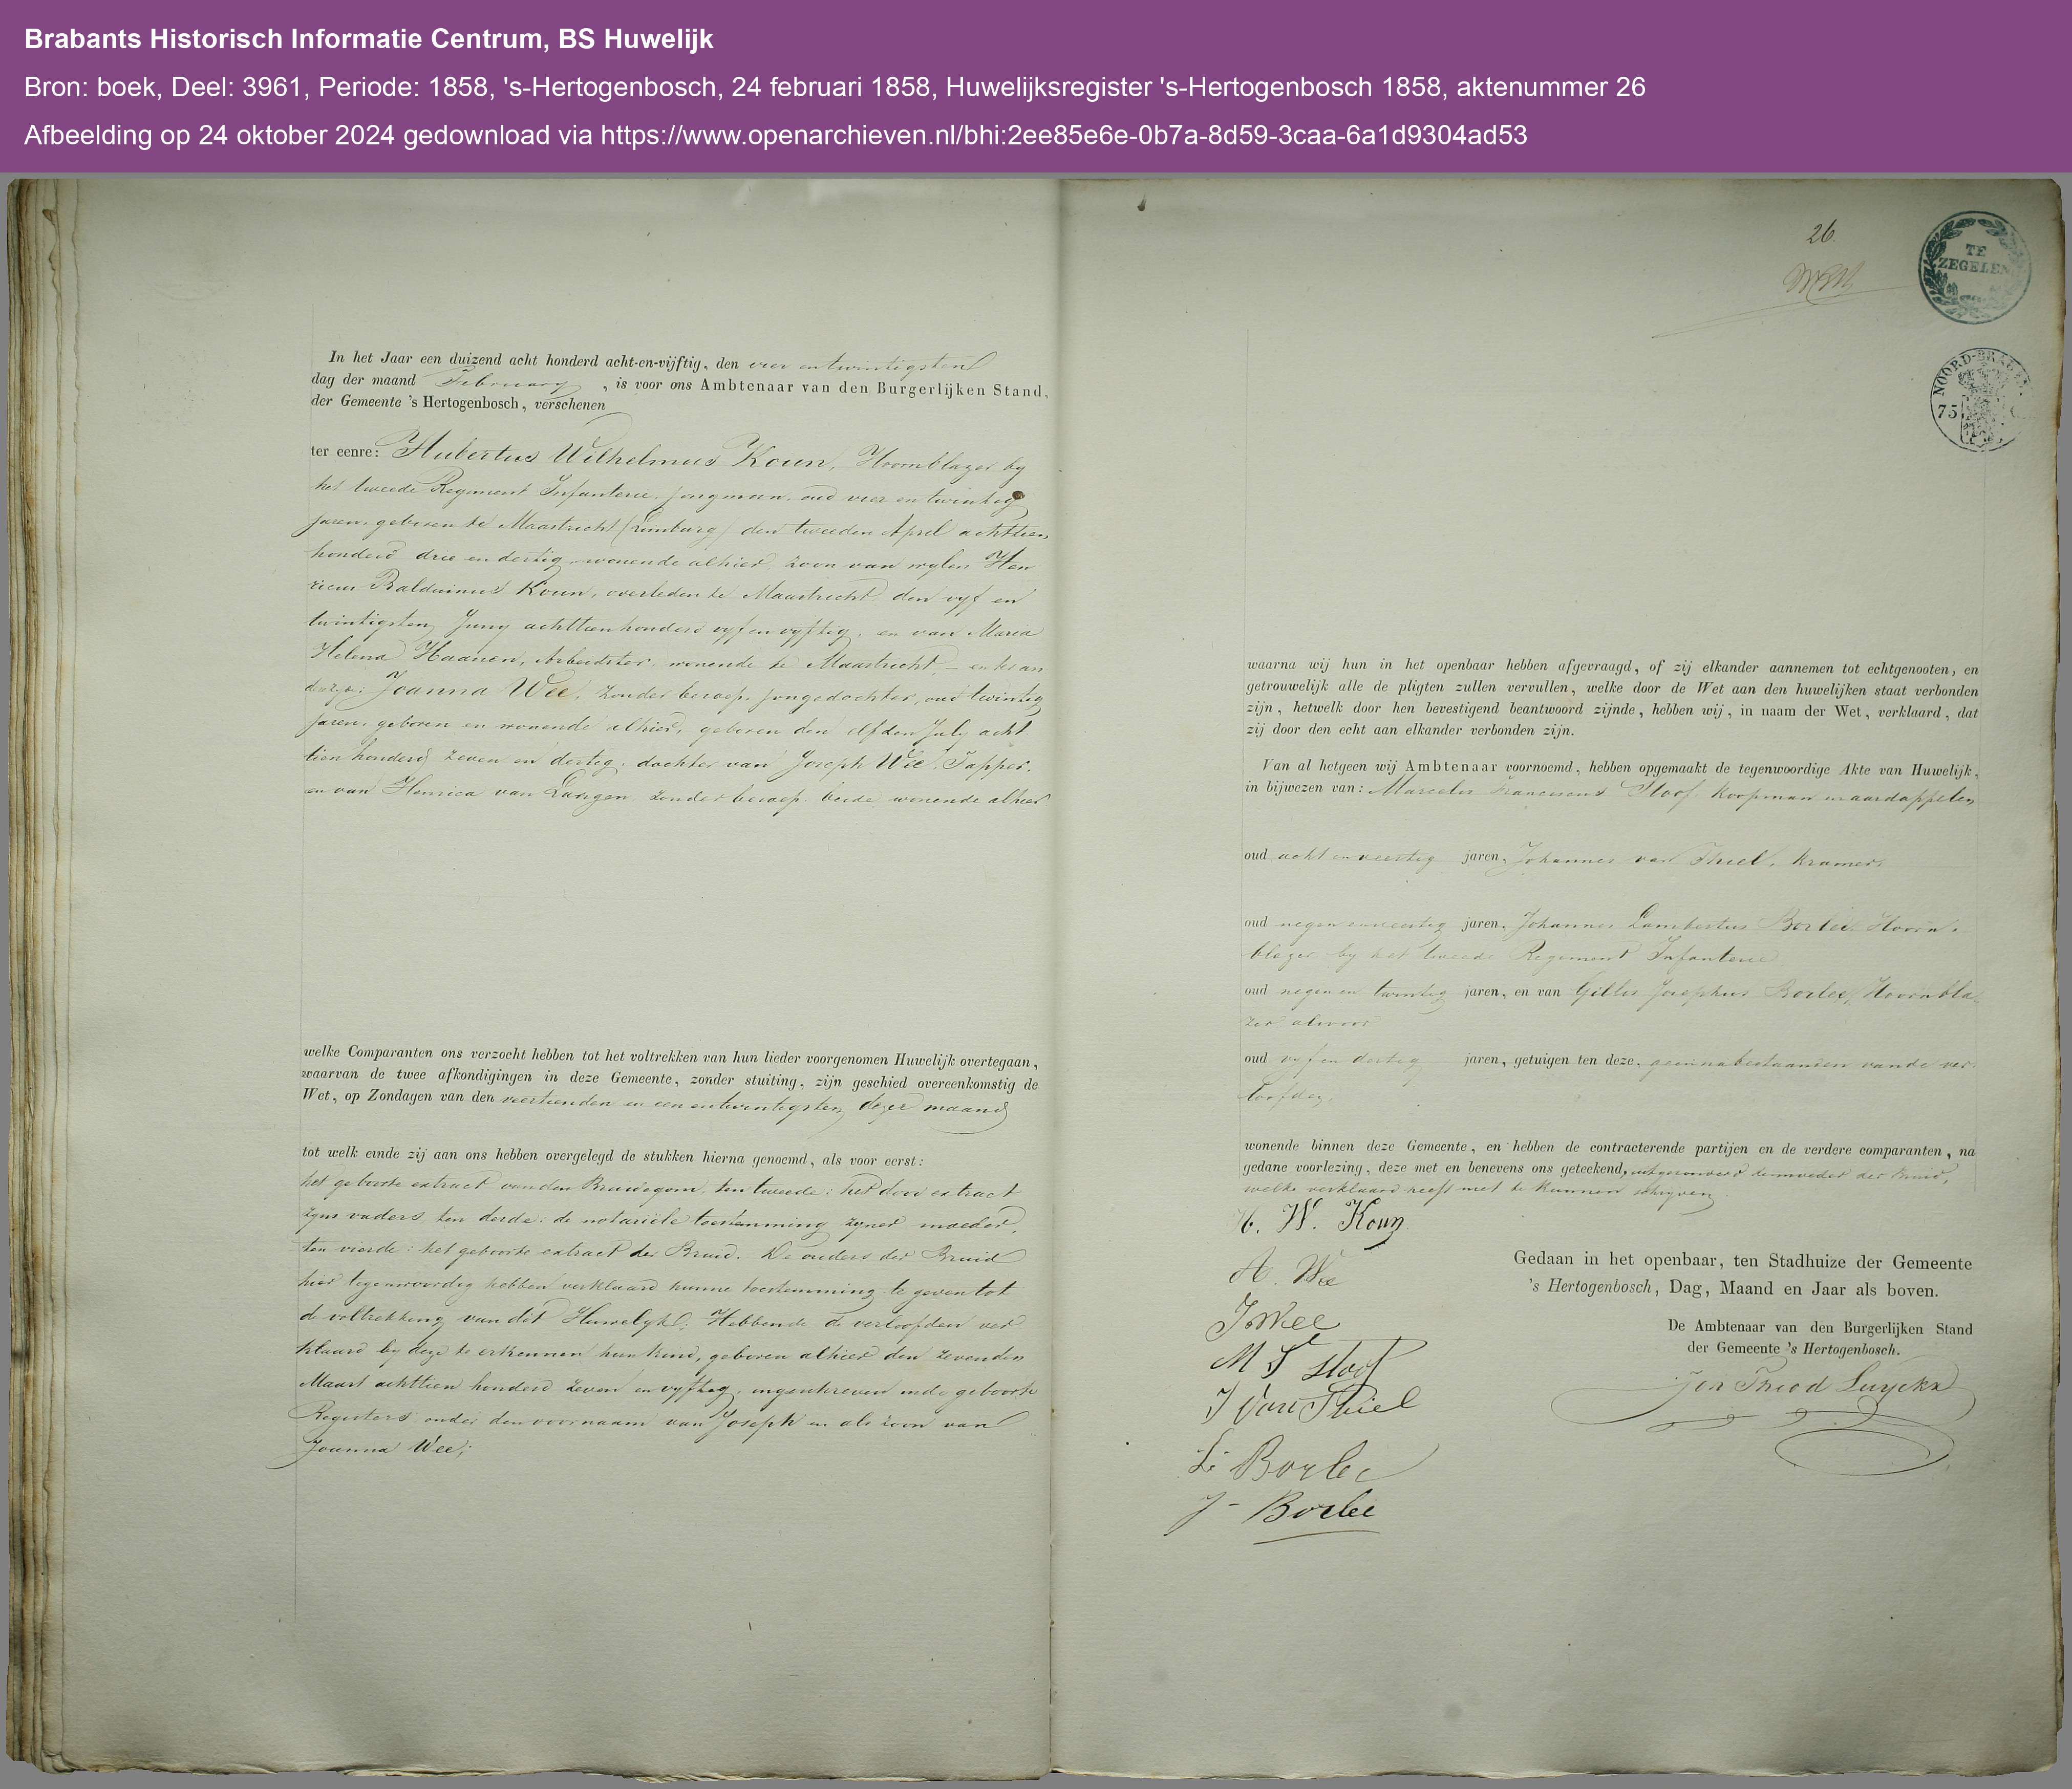 Brabants Historisch Informatie Centrum, BS Huwelijk
Bron: boek, Deel: 3961, Periode: 1858, 's-Hertogenbosch, 24 februari 1858, Huwelijksregister 's-Hertogenbosch 1858, aktenummer 26
Afbeelding op 24 oktober 2024 gedownload via https://www.openarchieven.nl/bhi:2ee85e6e-0b7a-8d59-3caa-6a1d9304ad53
In het Jaar een duizend acht honderd acht-en-vijftig, den vier en twintigsten
dag der maand February , is voor ons Ambtenaar van den Burgerlijken Stand,
der Gemeente 's Hertogenbosch, verschenen
ter eenre: Hubertus Wilhelmus Koun, Hoornblazer by
het tweede Regiment Infanterie, jongman, oud vier en twintig
jaren, geboren te Maastricht (Limburg) den tweeden April achttien
honderd drie en dertig, wonende alhier, zoon van wylen Hen
ricus Balduinus Koun, overleden te Maastricht, den vyf en
twintigsten Juny achttienhonderd vyf en vyftig, en van Maria
Helena Haanen, Arbeidster, wonende te Maastricht, en ter an
derzyde: Joanna Wee, zonder beroep, jongedochter, oud twintig
jaren, geboren en wonende alhier, geboren den elfden July acht
tien honderd zeven en dertig, dochter van Joseph Wee, Tapper,
en van Henrica van Langen, zonder beroep, beide wonende alhier
welke Comparanten ons verzocht hebben tot het voltrekken van hun lieder voorgenomen Huwelijk overtegaan,
waarvan de twee afkondigingen in deze Gemeente, zonder stuiting, zijn geschied overeenkomstig de
Wet, op Zondagen van den veertienden en een en twintigsten dezer maand
tot welk einde zij aan ons hebben overgelegd de stukken hierna genoemd, als voor eerst:
het geboorte extract van den Bruidegom, ten tweede: het dood extract
zyns vaders, ten derde: de notariële toestemming zyner moeder,
ten vierde: het geboorte extract der Bruid. De ouders der Bruid
hier tegenwoordig hebben verklaard hunne toestemming te geven tot
de voltrekking van dit Huwelyk. Hebbende de verloofden ver
klaard by deze te erkennen hun kind, geboren alhier den zevenden
Maart achttien honderd zeven en vyftig, ingeschreven in de geboorte
Registers onder den voornaam van Joseph en als zoon van
Joanna Wee;
26
TE
ZEGELEN
NOORD-BRABANT
75
waarna wij hun in het openbaar hebben afgevraagd, of zij elkander aannemen tot echtgenooten, en
getrouwelijk alle de pligten zullen vervullen, welke door de Wet aan den huwelijken staat verbonden
zijn, hetwelk door hen bevestigend beantwoord zijnde, hebben wij, in naam der Wet, verklaard, dat
zij door den echt aan elkander verbonden zijn.
Van al hetgeen wij Ambtenaar voornoemd, hebben opgemaakt de tegenwoordige Akte van Huwelijk,
in bijwezen van: Marcelis Franciscus Stoof, koopman in aardappelen
oud acht en veertig jaren, Johannes van Thiel, kramer,
oud negen en veertig jaren, Johannes Lambertus Borlee, Hoorn-
blazer by het tweede Regiment Infanterie
oud negen en twintig jaren, en van Gillis Josephus Borlee, Hoornbla-
zer alvoor
oud vyf en dertig jaren, getuigen ten deze, geen nabestaanden van de ver-
loofden,
wonende binnen deze Gemeente, en hebben de contracterende partijen en de verdere comparanten, na
gedane voorlezing, deze met en benevens ons geteekend, uitgezonderd de moeder der Bruid,
welke verklaard heeft niet te kunnen schryven
H. W. Koun
A. Wee
J. Wee
M F Stoof
J Van Thiel
L: Borlee
J - Borlee
Gedaan in het openbaar, ten Stadhuize der Gemeente
's Hertogenbosch, Dag, Maand en Jaar als boven.
De Ambtenaar van den Burgerlijken Stand
der Gemeente 's Hertogenbosch.
Jon Theod Luyckx